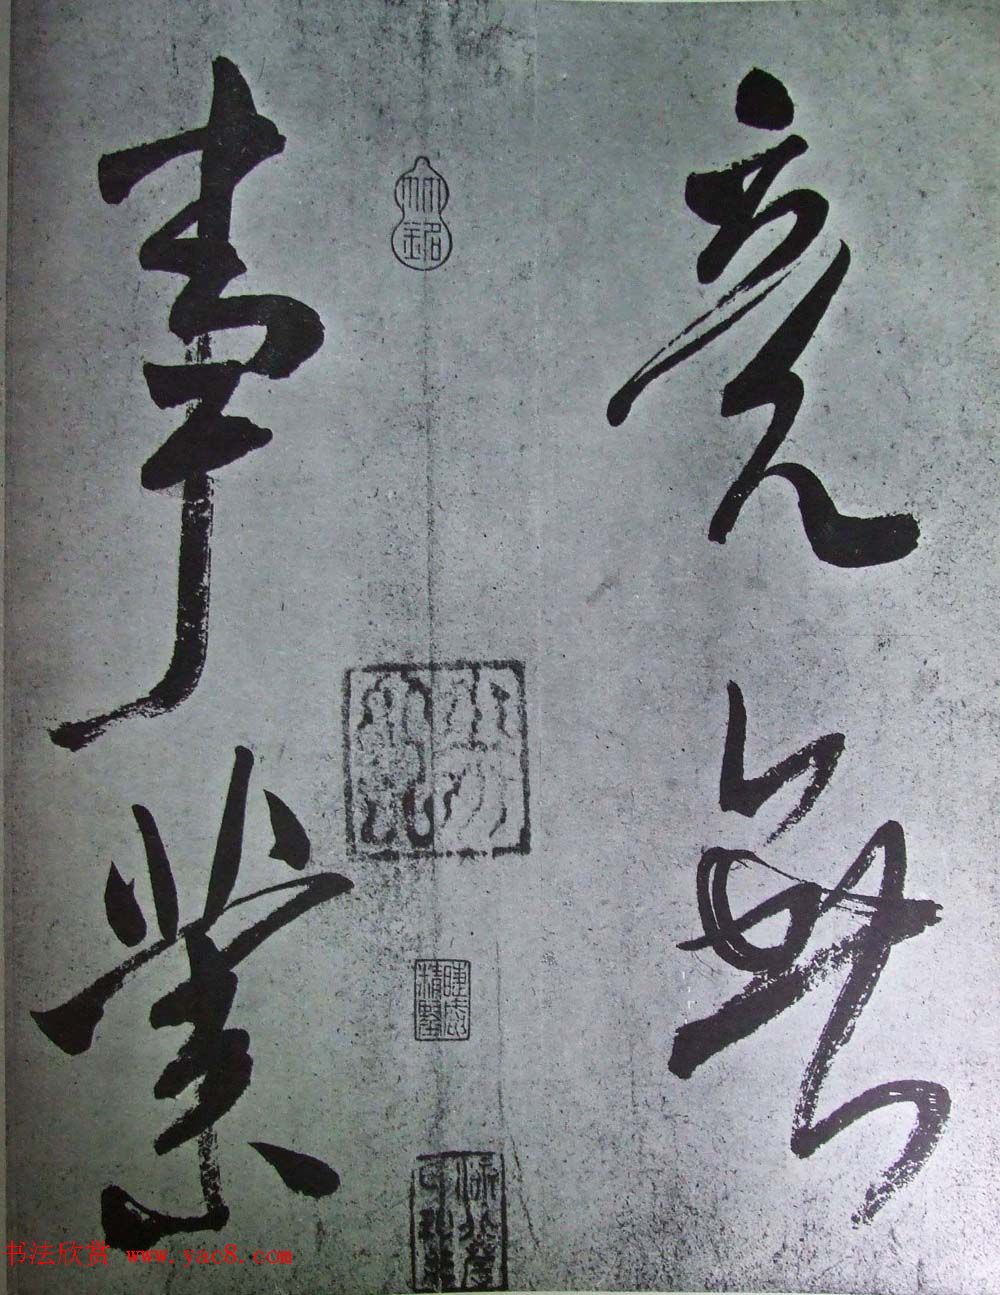 竟無
事業
书法欣赏 www.yac8.com